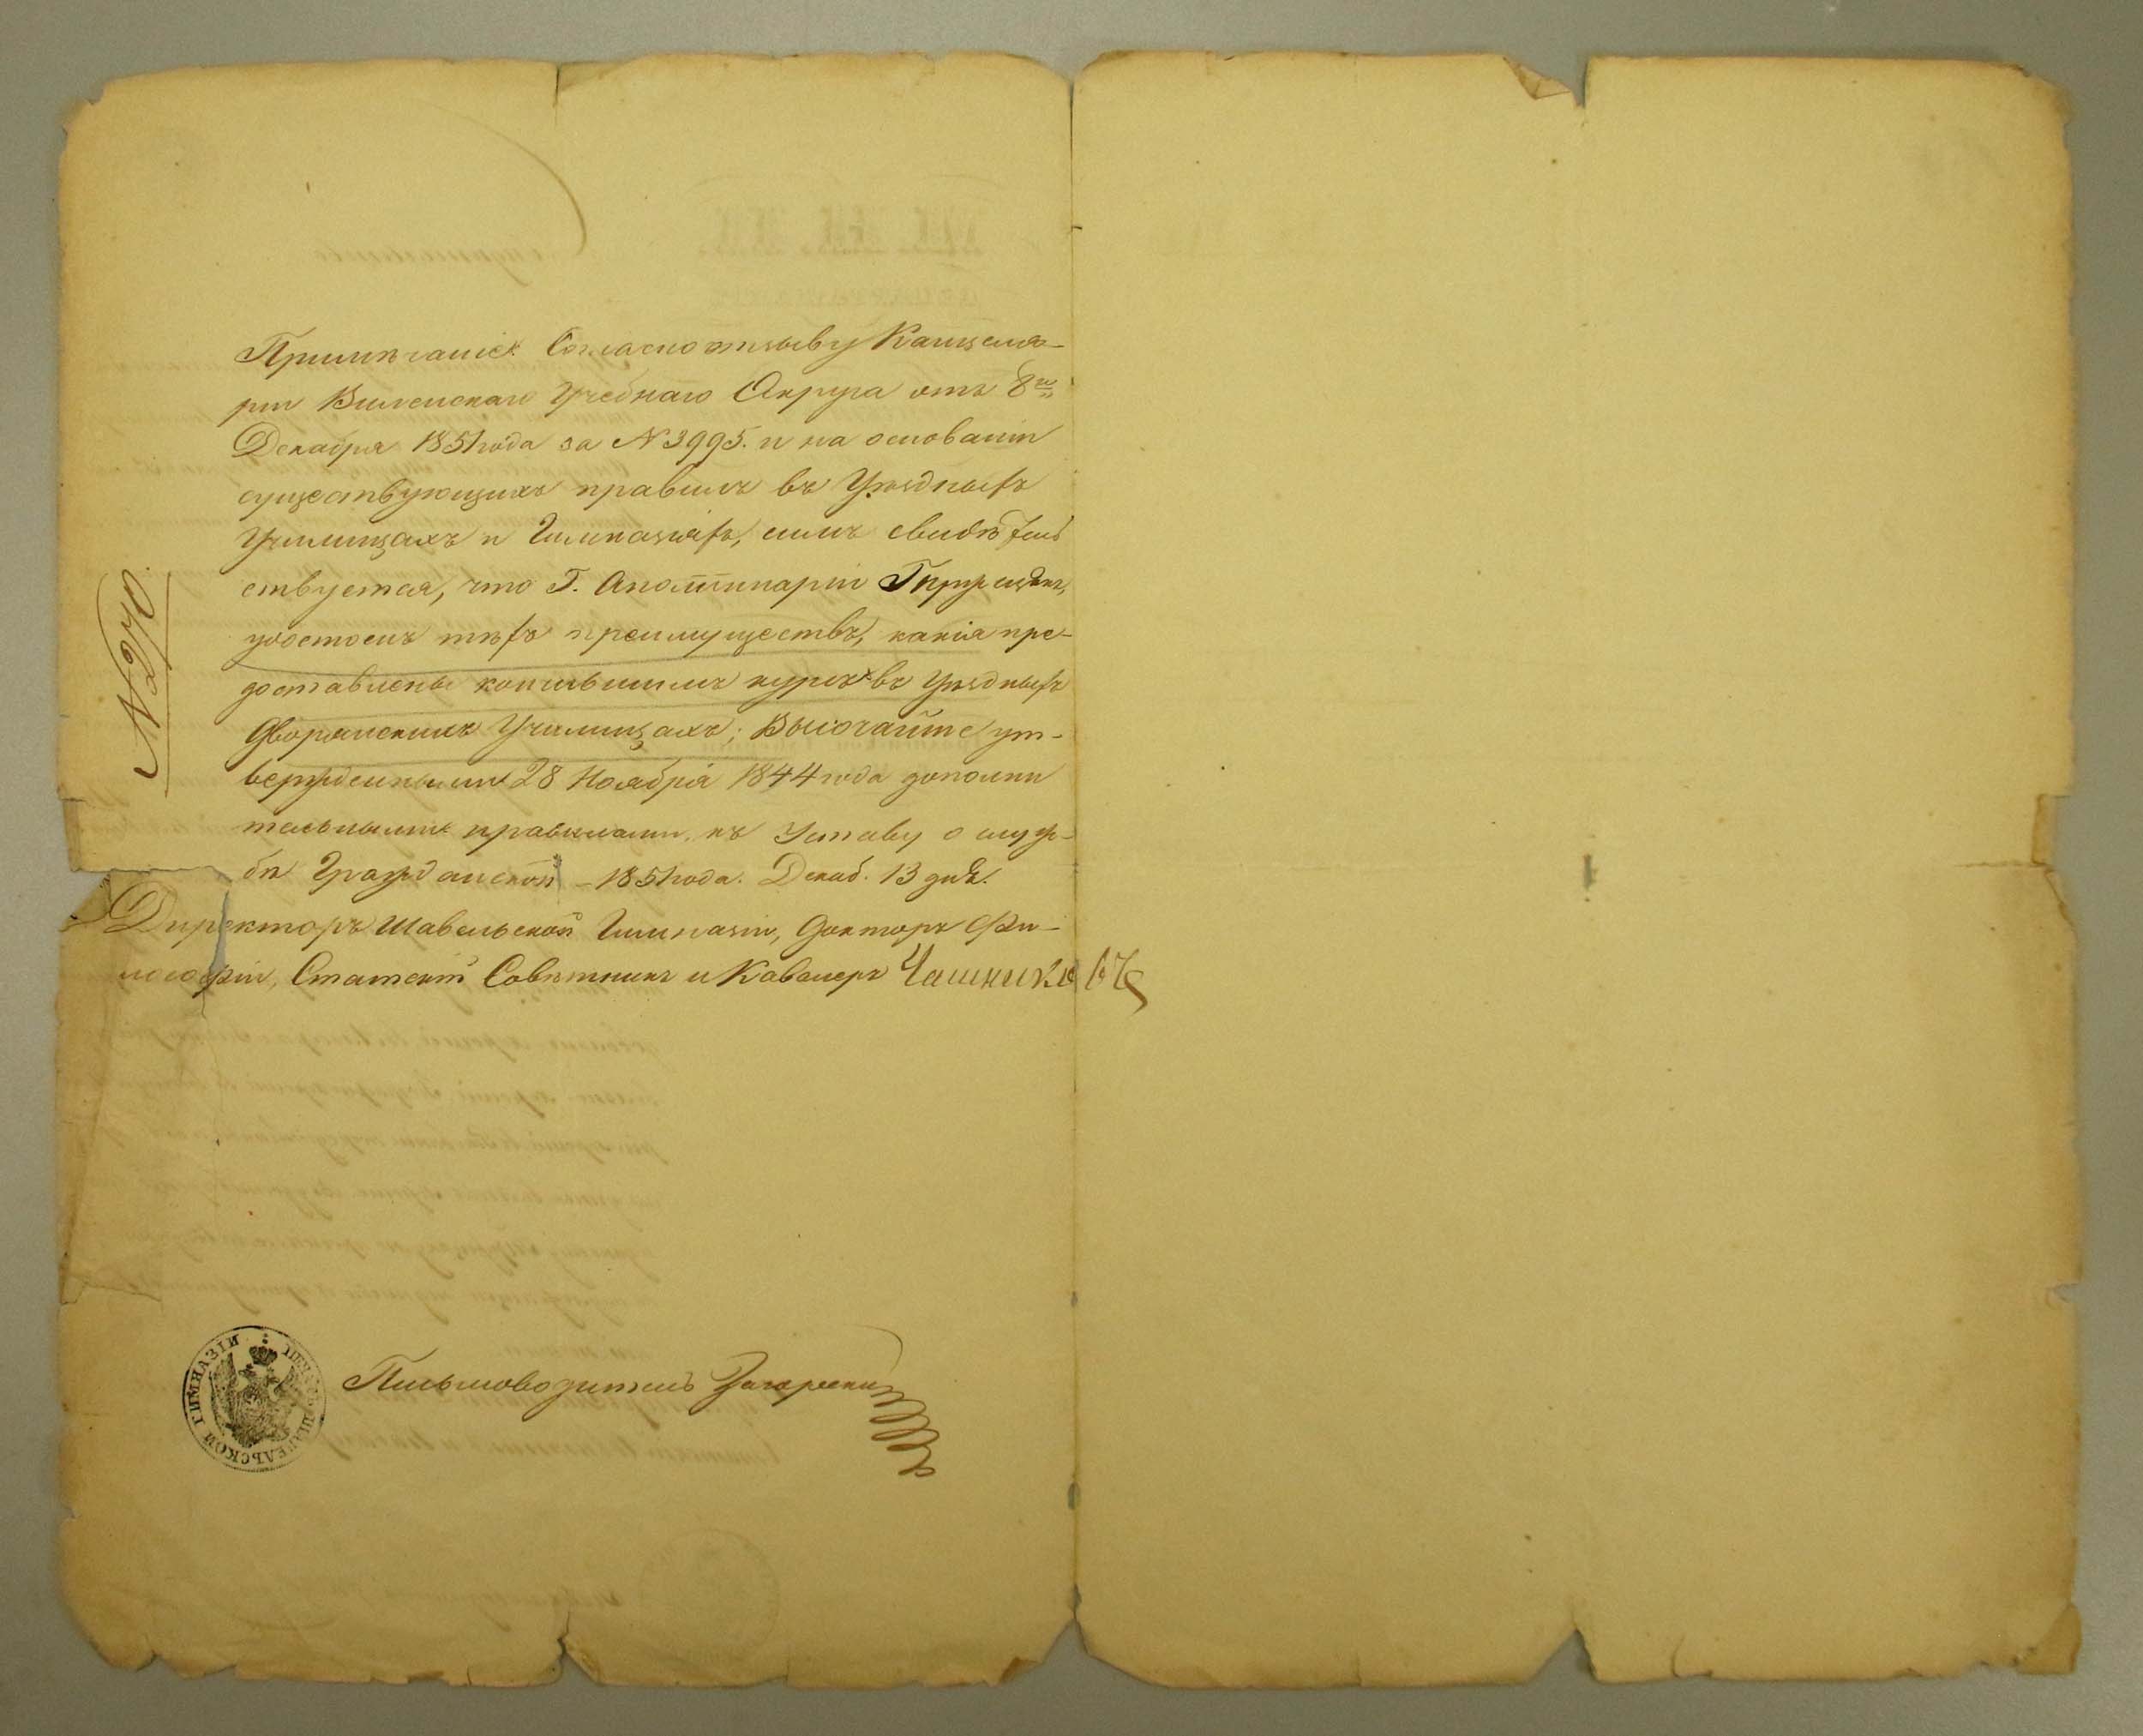 Примѣчаніе. Согласно отзыву Канцеля-
ріи Виленскаго Учебнаго Округа отъ 8го
Декабря 1851 года за N 3995. и на основаніи
существующихъ правилъ въ Уѣздныхъ
Училищахъ и Гимназіяхъ, симъ свидѣтель
ствуется, что Г. Аполлинарій
удостоенъ тѣхъ преимуществъ, какія пре-
доставлены кончившимъ курсъ въ Уѣздныхъ
Дворянскихъ Училищахъ, Высочайше ут-
вержденными 28 Ноября 1844 года дополни
тельными правилами къ Уставу о служ-
бѣ Гражданской – 1851 года. Декаб. 13 дня.
Директоръ Шавельской Гимназіи, Докторъ Фи-
лософіи, Статскій Совѣтникъ и Кавалеръ Чашниковъ
N 270.
Письмоводитель Загорскій
ПЕЧАТЬ ШАВЕЛЬСКОЙ ГИМНАЗІИ